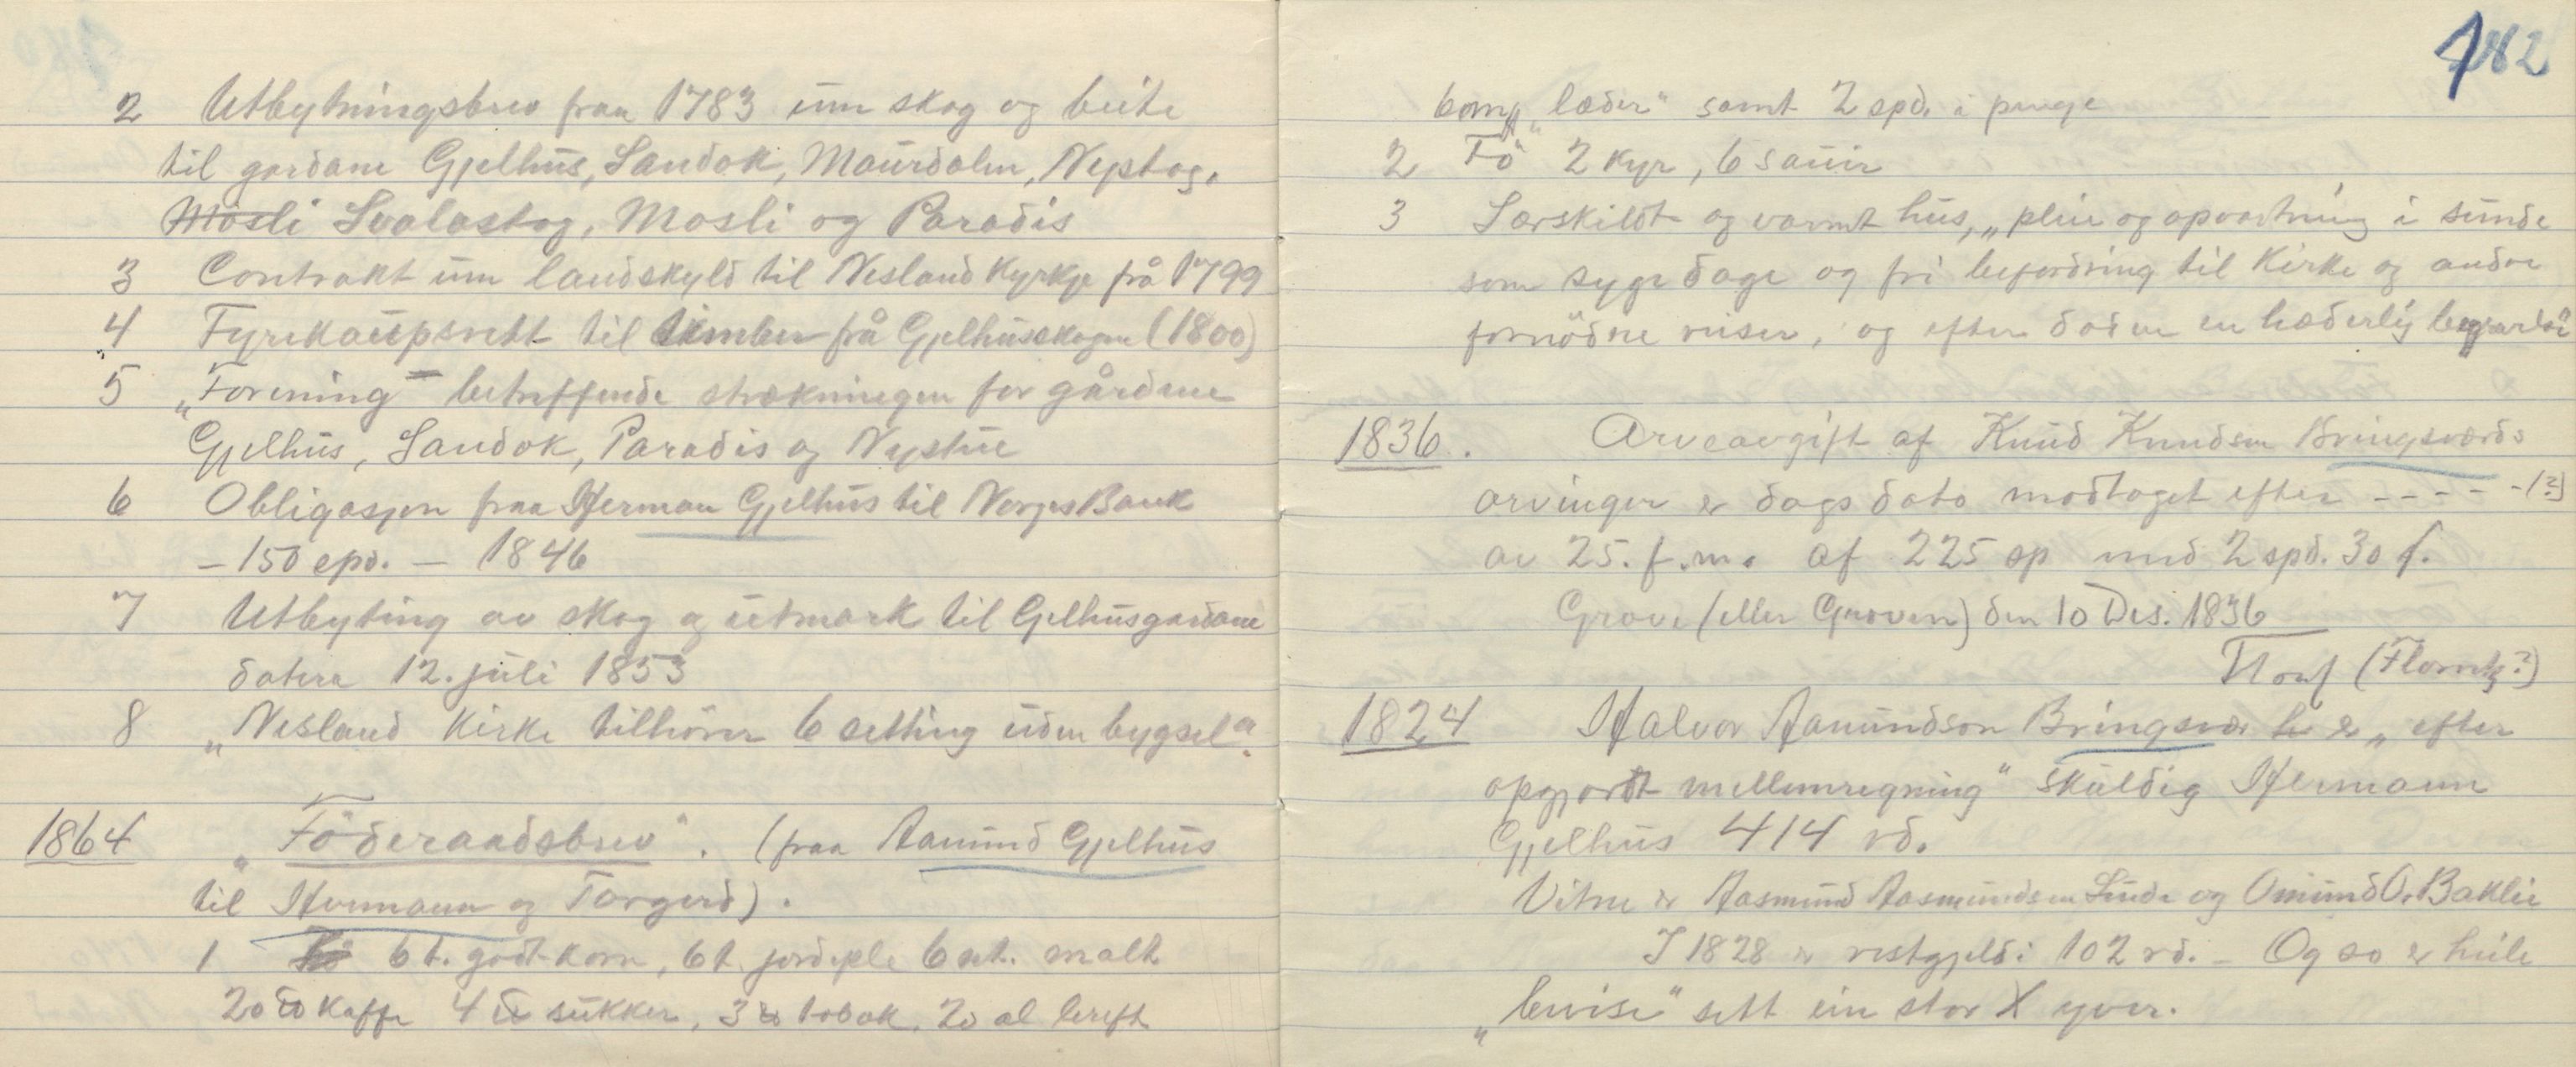 2 Utbytningsbrev fraa 1783 um skog og beite
til gardane Gjelhus, Sandok, Maurdalen, Nystog,
Mosli Svalastog, Mosli og Paradis
3 Contrakt um landskyld til Nesland Kyrkje frå 1799
4 Fyrekaupsrett til timber frå Gjelhusskogen (1800)
5 „Forening" betreffende strækningen for gårdene
Gjelhus, Sandok, Paradis og Nystue
6 Obligasjon fraa Herman Gjelhus til Norges Bank
– 150 spd. – 1846
7 Utbyting av skog og utmark til Gjelhusgardane
datera 12. juli 1853
8 „Nesland Kirke tilhörer 6 setting uden bygsel".
1864 „Föderaadsbrev". (fraa Aamund Gjelhus
til Hermann og Torgerd).
1 6 t. godt korn, 6 t. jordeple 6 set. malt
20 kaffe 4 sukker, 3 tobak, 20 al lereft
182
6 „læder" samt 2 spd. i penge
2 Fö 2 kyr, 6 sauir
3 Særskildt og varmt hus, „pleie og opvartning i sunde
som syge dage og fri befordring til Kirke og andre
fornödne reiser, og efter döden en hæderlig begravelse"
1836. Arveavgift af Knud Knudsen Bringsværds
arvinger er dags dato modtaget efter - - - - - (?)
av 25. f.m. af 225 sp med 2 spd. 30 f.
Grove (eller Groven) den 10 Des. 1836
(Florentz?)
1824 Halvor Aamundson Bringsvær h er „efter
opgjordt mellemregning" skuldig Hermann
Gjelhus 414 rd.
Vitne er Aasmund Aasmundsen Lude og Omund O. Baklie
I 1828 er restgjeld: 102 rd. – Og so er heile
„bevise" sett ein stor X yver.